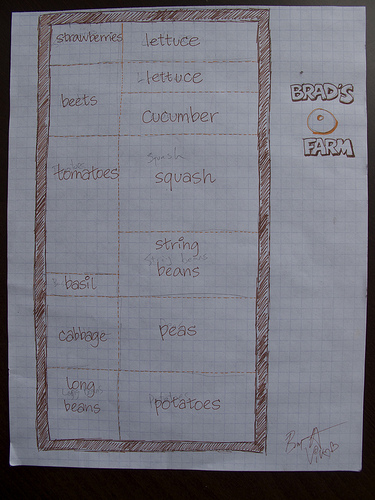 strawberries lettuce
lettuce
beets
cucumber
squash
tomatoes squash
string
beans
basil
cabbage peas
long
beans
potatoes
BRAD'S
FARM